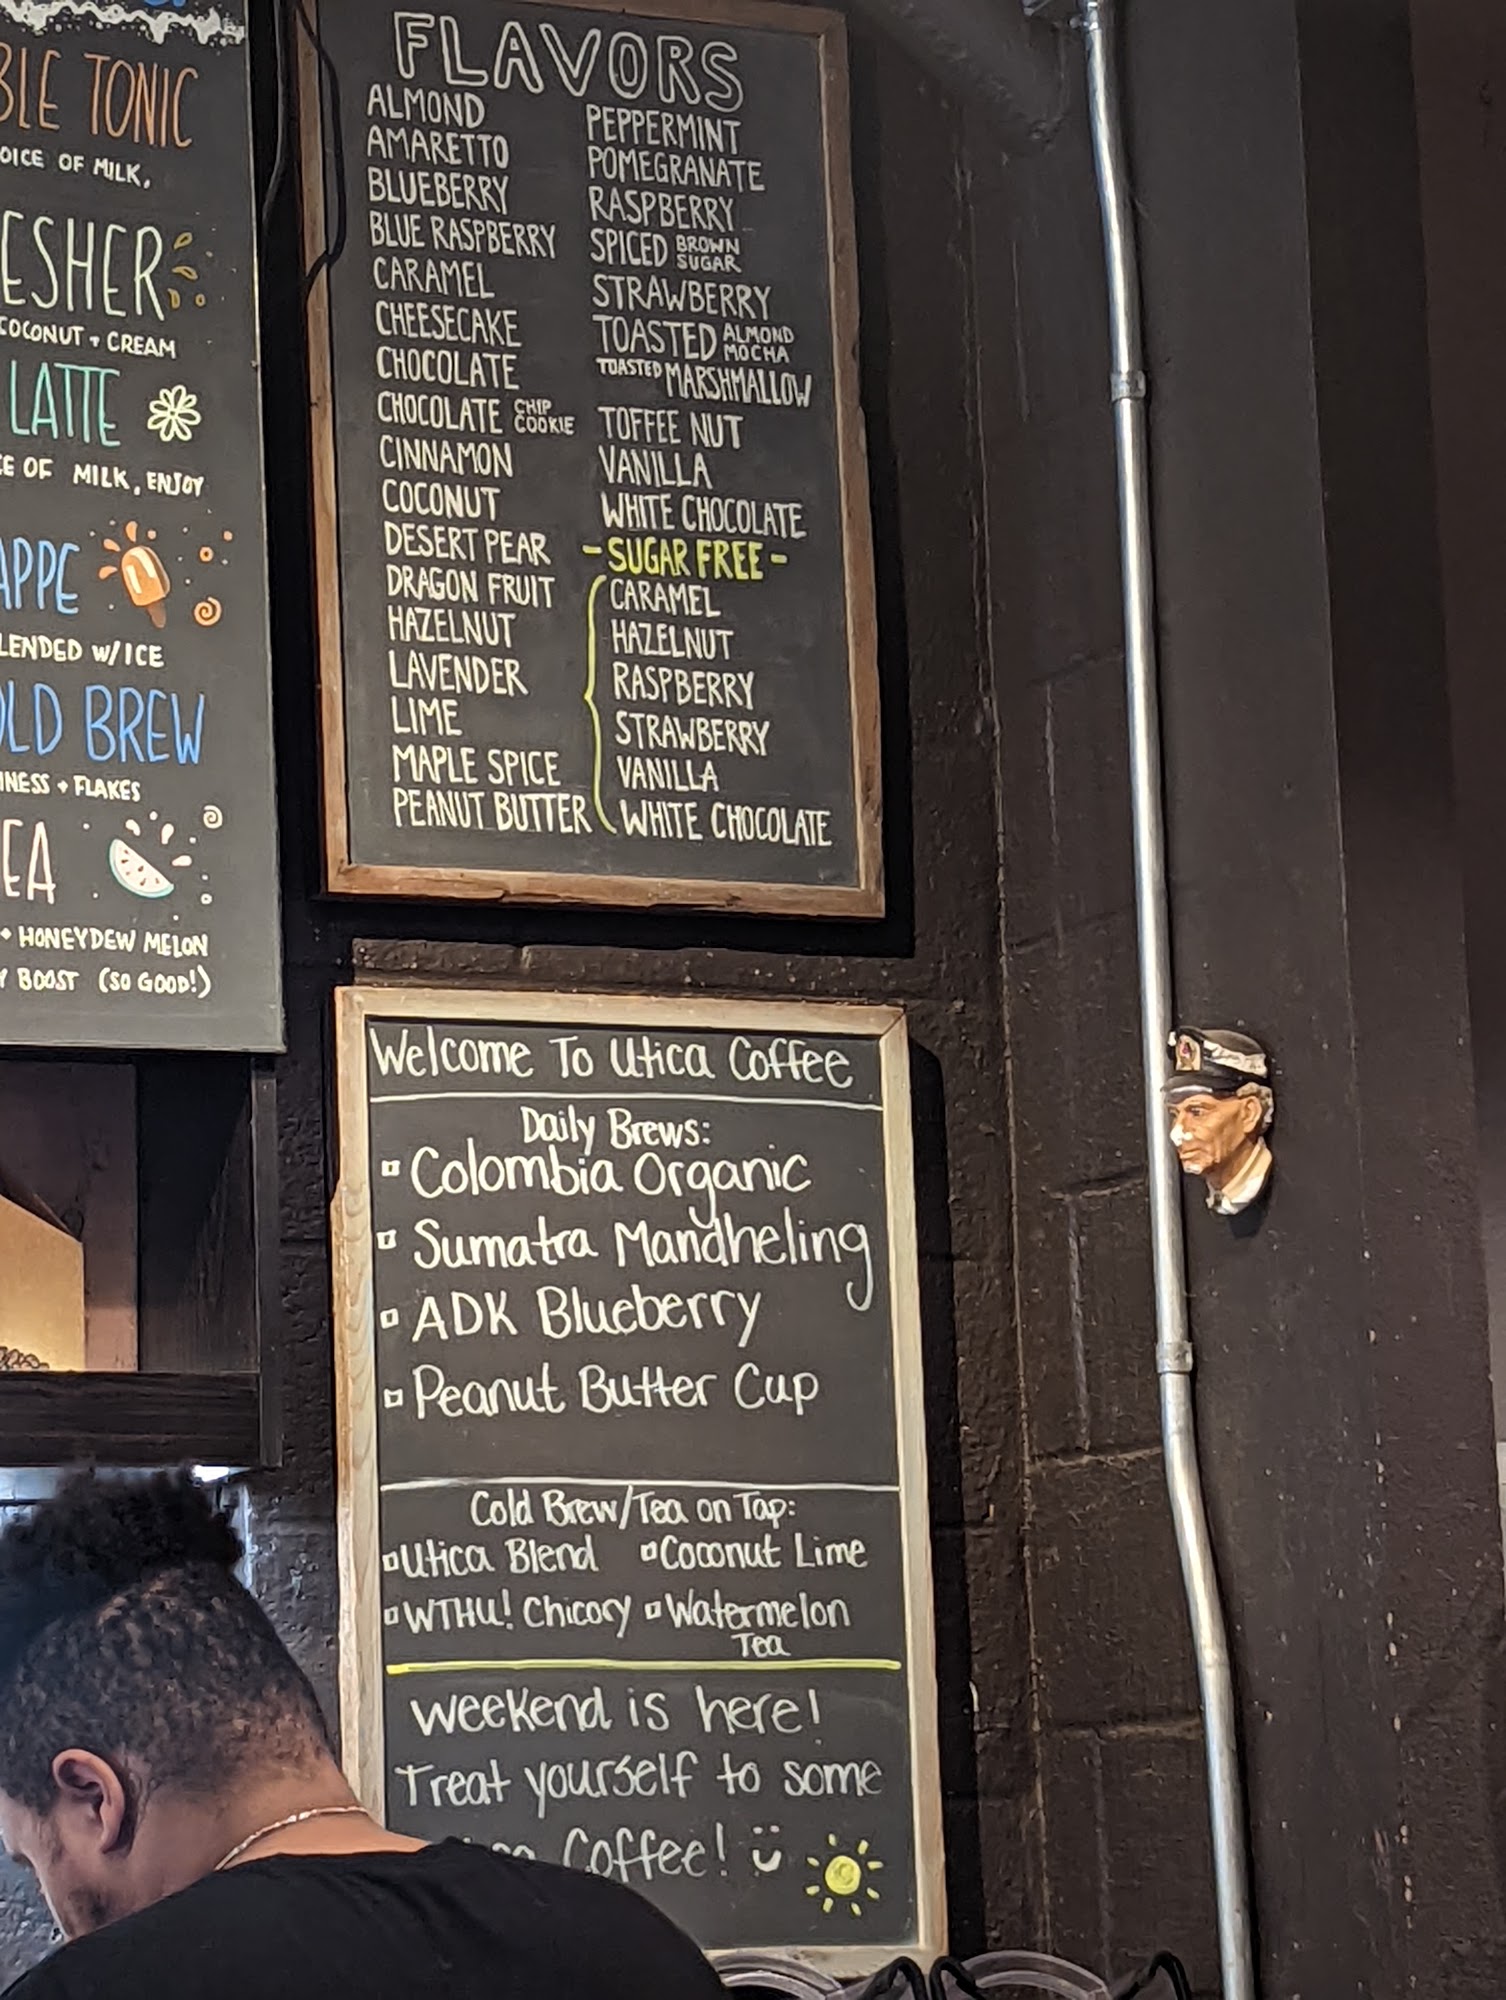 BLE TONIC
OICE OF MILK,
ESHER
COCONUT + CREAM
LATTE
CE OF MILK, ENJOY
APPE
LENDED W/ICE
OLD BREW
INESS + FLAKES
EA
+ HONEYDEW MELON
Y BOOST (SO GOOD!)
FLAVORS
ALMOND
AMARETTO
BLUEBERRY
BLUE RASPBERRY
CARAMEL
CHEESECAKE
CHOCOLATE
CHOCOLATE CHIP COOKIE
CINNAMON
COCONUT
DESERT PEAR
DRAGON FRUIT
HAZELNUT
LAVENDER
LIME
MAPLE SPICE
PEANUT BUTTER
PEPPERMINT
POMEGRANATE
RASPBERRY
SPICED BROWN SUGAR
STRAWBERRY
TOASTED ALMOND MOCHA
TOASTED MARSHMALLOW
TOFFEE NUT
VANILLA
WHITE CHOCOLATE
- SUGAR FREE -
CARAMEL
HAZELNUT
RASPBERRY
STRAWBERRY
VANILLA
WHITE CHOCOLATE
Welcome To Utica Coffee
Daily Brews:
Colombia Organic
Sumatra Mandheling
ADK Blueberry
Peanut Butter Cup
Cold Brew/Tea on Tap:
Utica Blend Coconut Lime
WTHU! Chicory Watermelon
Tea
Weekend is here!
Treat yourself to some
Coffee!